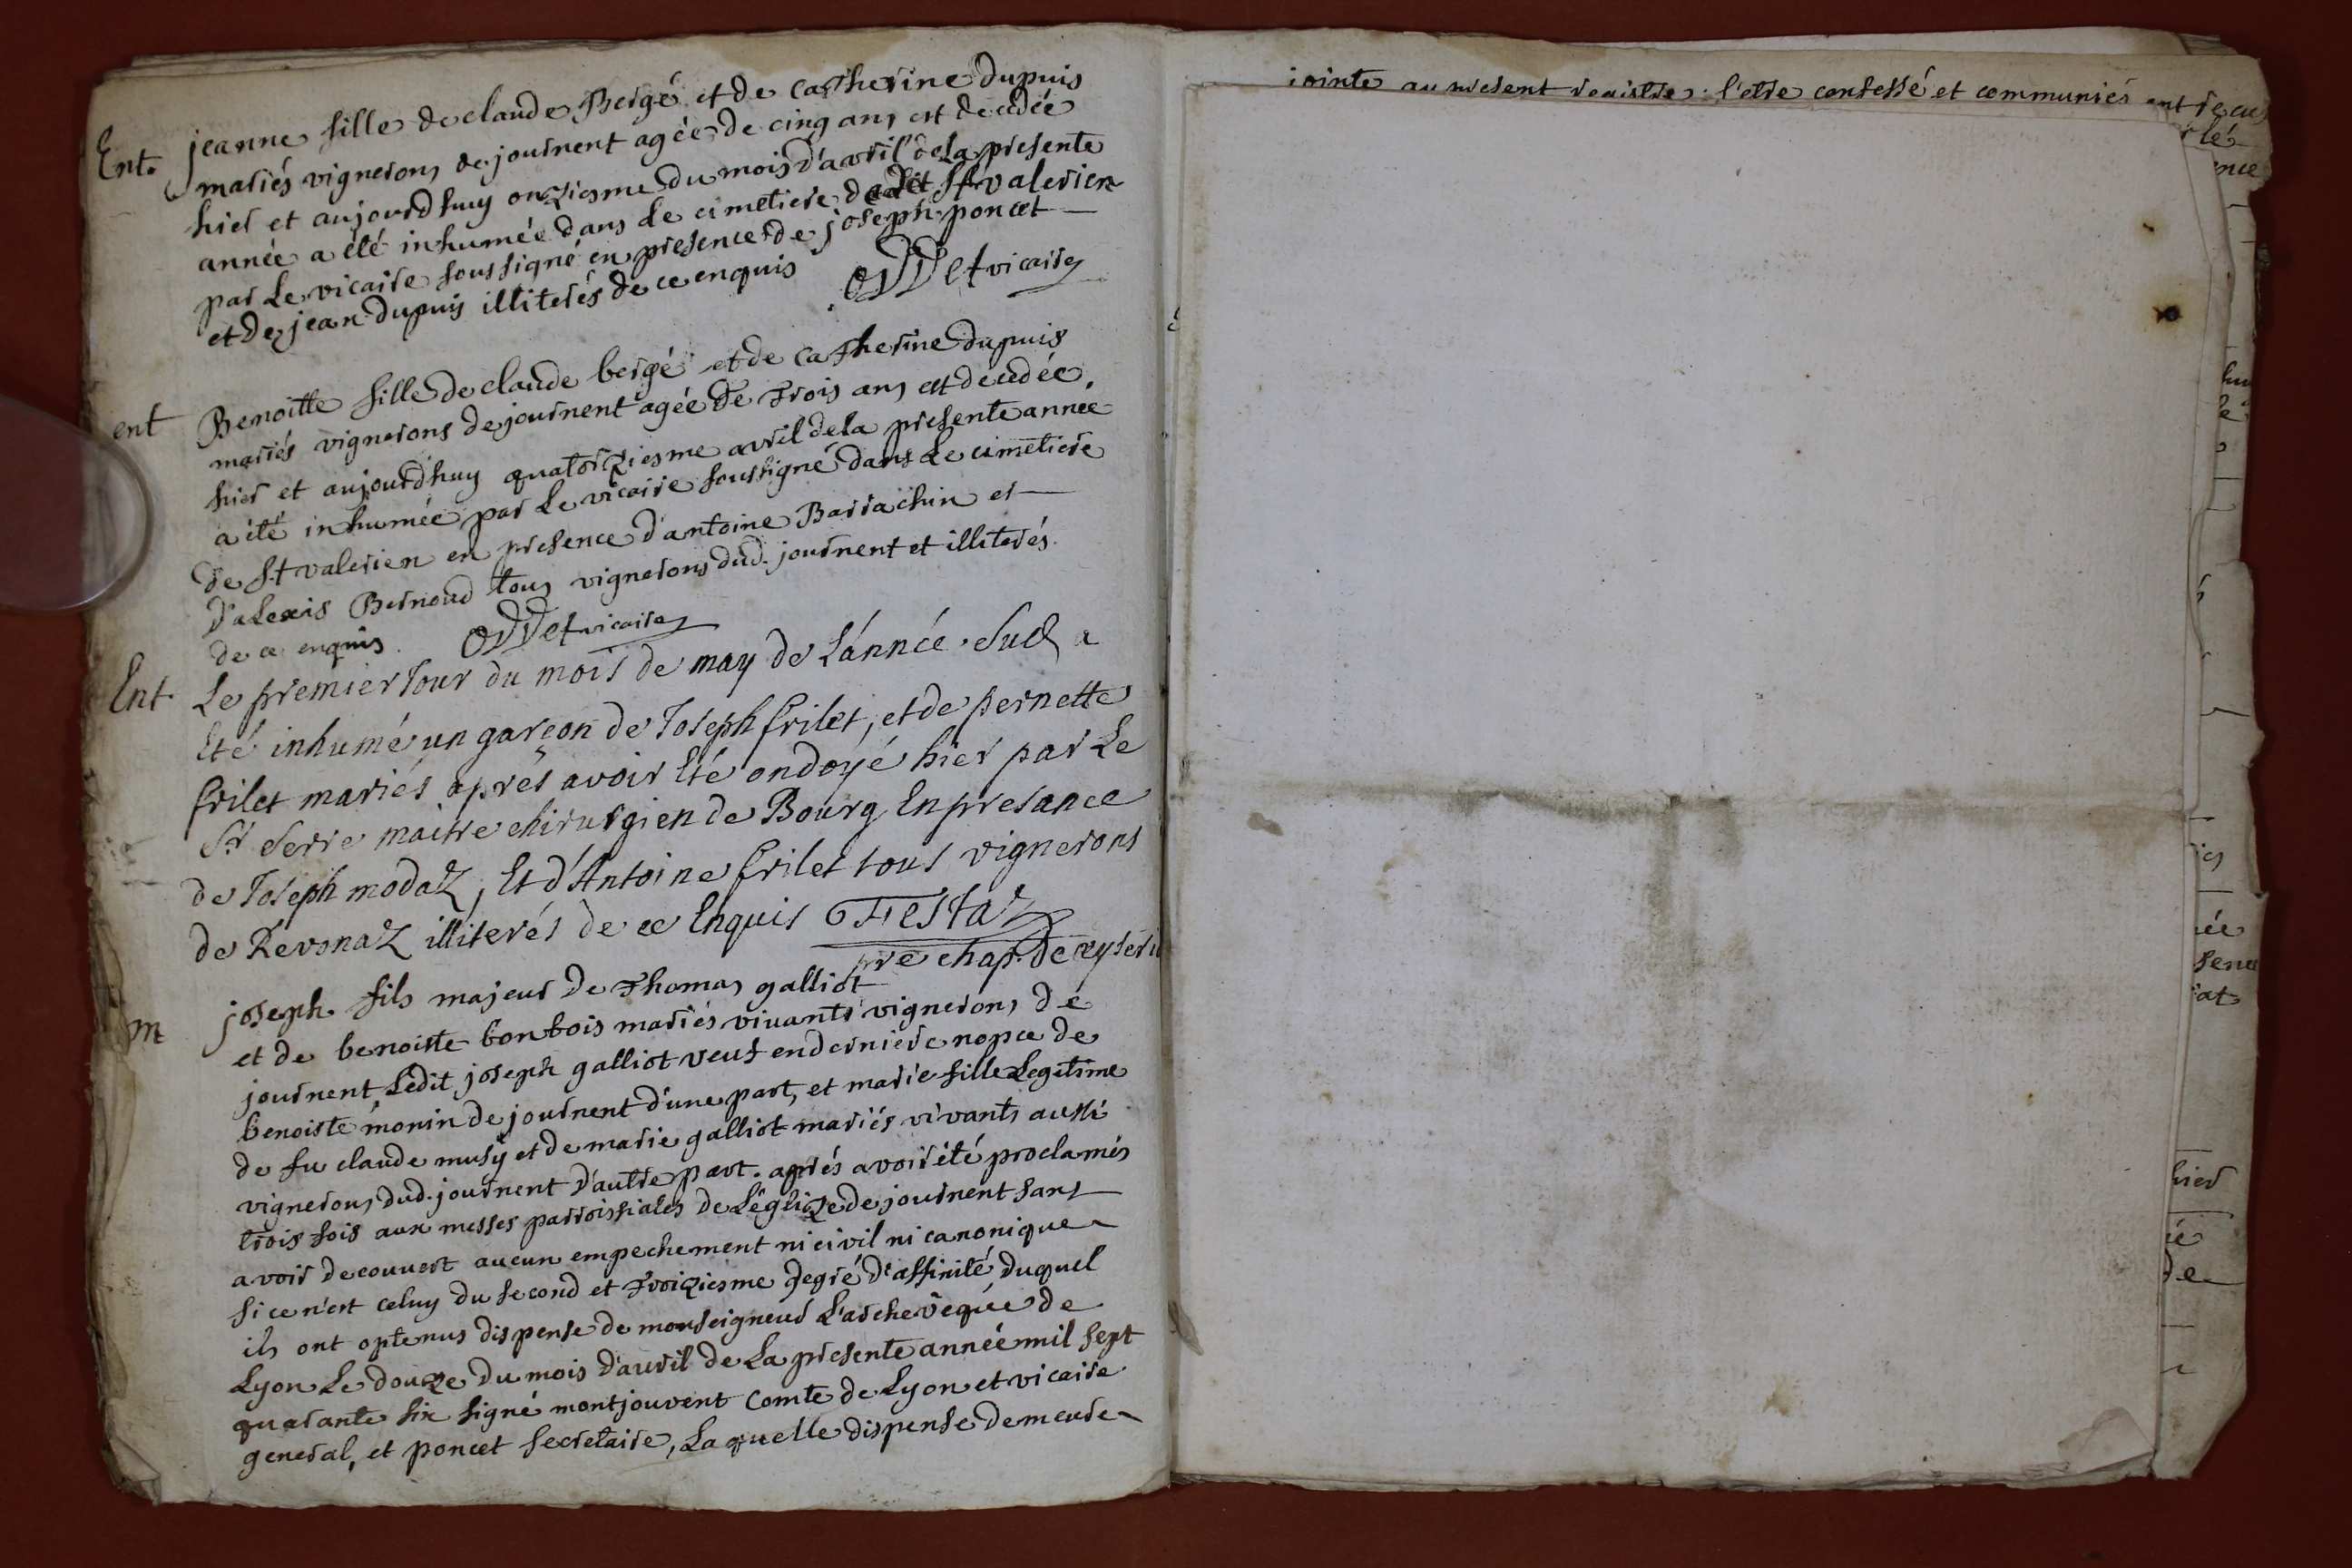 Ent. jeanne fille de claude Bergé et de catherine dupuis
mariés vignerons de journent agée de cinq ans est decedée
hier et aujourdhuy onziesme du mois d'avril de la presente
année a été inhumée dans le cimetiere dudit St valerien
par le vicaire soussigné en presence de joseph poncet
et de jean dupuis illiterés de ce enquis
oddet vicaire
ent Benoitte fille de claude bergé et de catherine dupuis
mariés vignerons de journent agée de trois ans est decedée,
hier et aujourdhuy quatorziesme avril de la presente annee
a été inhumée par le vicaire soussigné dans le cimetiere
de St valerien en presence d'antoine Barrachin et
d'alexis Bernoud tous vignerons dud. journent et illiterés
de ce enquis. oddet vicaire
Ent. Le premier Jour du mois de may de L'année Sud a
Eté inhumé un garçon de Joseph frilet, et de pernette
frilet mariés après avoir Eté ondoyé hier par Le
Sr Serre maitre chirurgien de Bourg En presance
de Joseph modaz, Et d'Antoine frilet tous vignerons
de Revonaz illiterés de ce Enquis Festaz
pre chap. de ceyseri
m joseph fils majeur de thomas galliot
et de benoiste bonbois mariés vivants vignerons de
journent, Ledit joseph galliot veuf en derniere nopce de
benoiste monin de journent d'une part, et marie fille Legitime
de fu claude musy et de marie galliot mariés vivants aussi
vignerons dud. journent d'autre part. aprés avoir été proclamés
trois fois aux messes parroissiales de L'eglize de journent sans
avoir decouvert aucun empechement ni civil ni canonique
si ce n'est celuy du second et troiziesme degré d'affinité duquel
ils ont optenus dispense de monseigneur L'archevêque de
Lyon Le douze du mois d'avril de La presente année mil sept
quarante six signé montjouvent comte de Lyon et vicaire
general, et poncet secretaire, La quelle dispense demeure
jointe au present registre. l'etre confessé et communiés ont recus
lé
ence
hier
de
sence